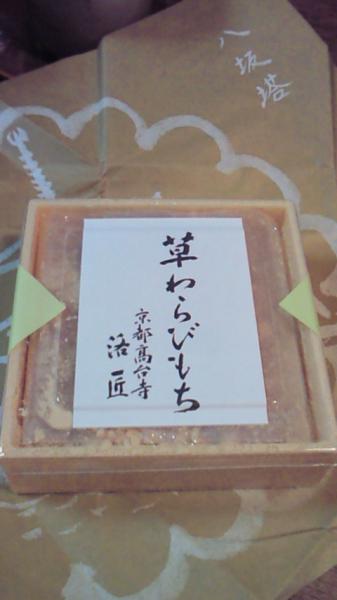 八坂塔
草わらびもち
京都高台寺
洛匠